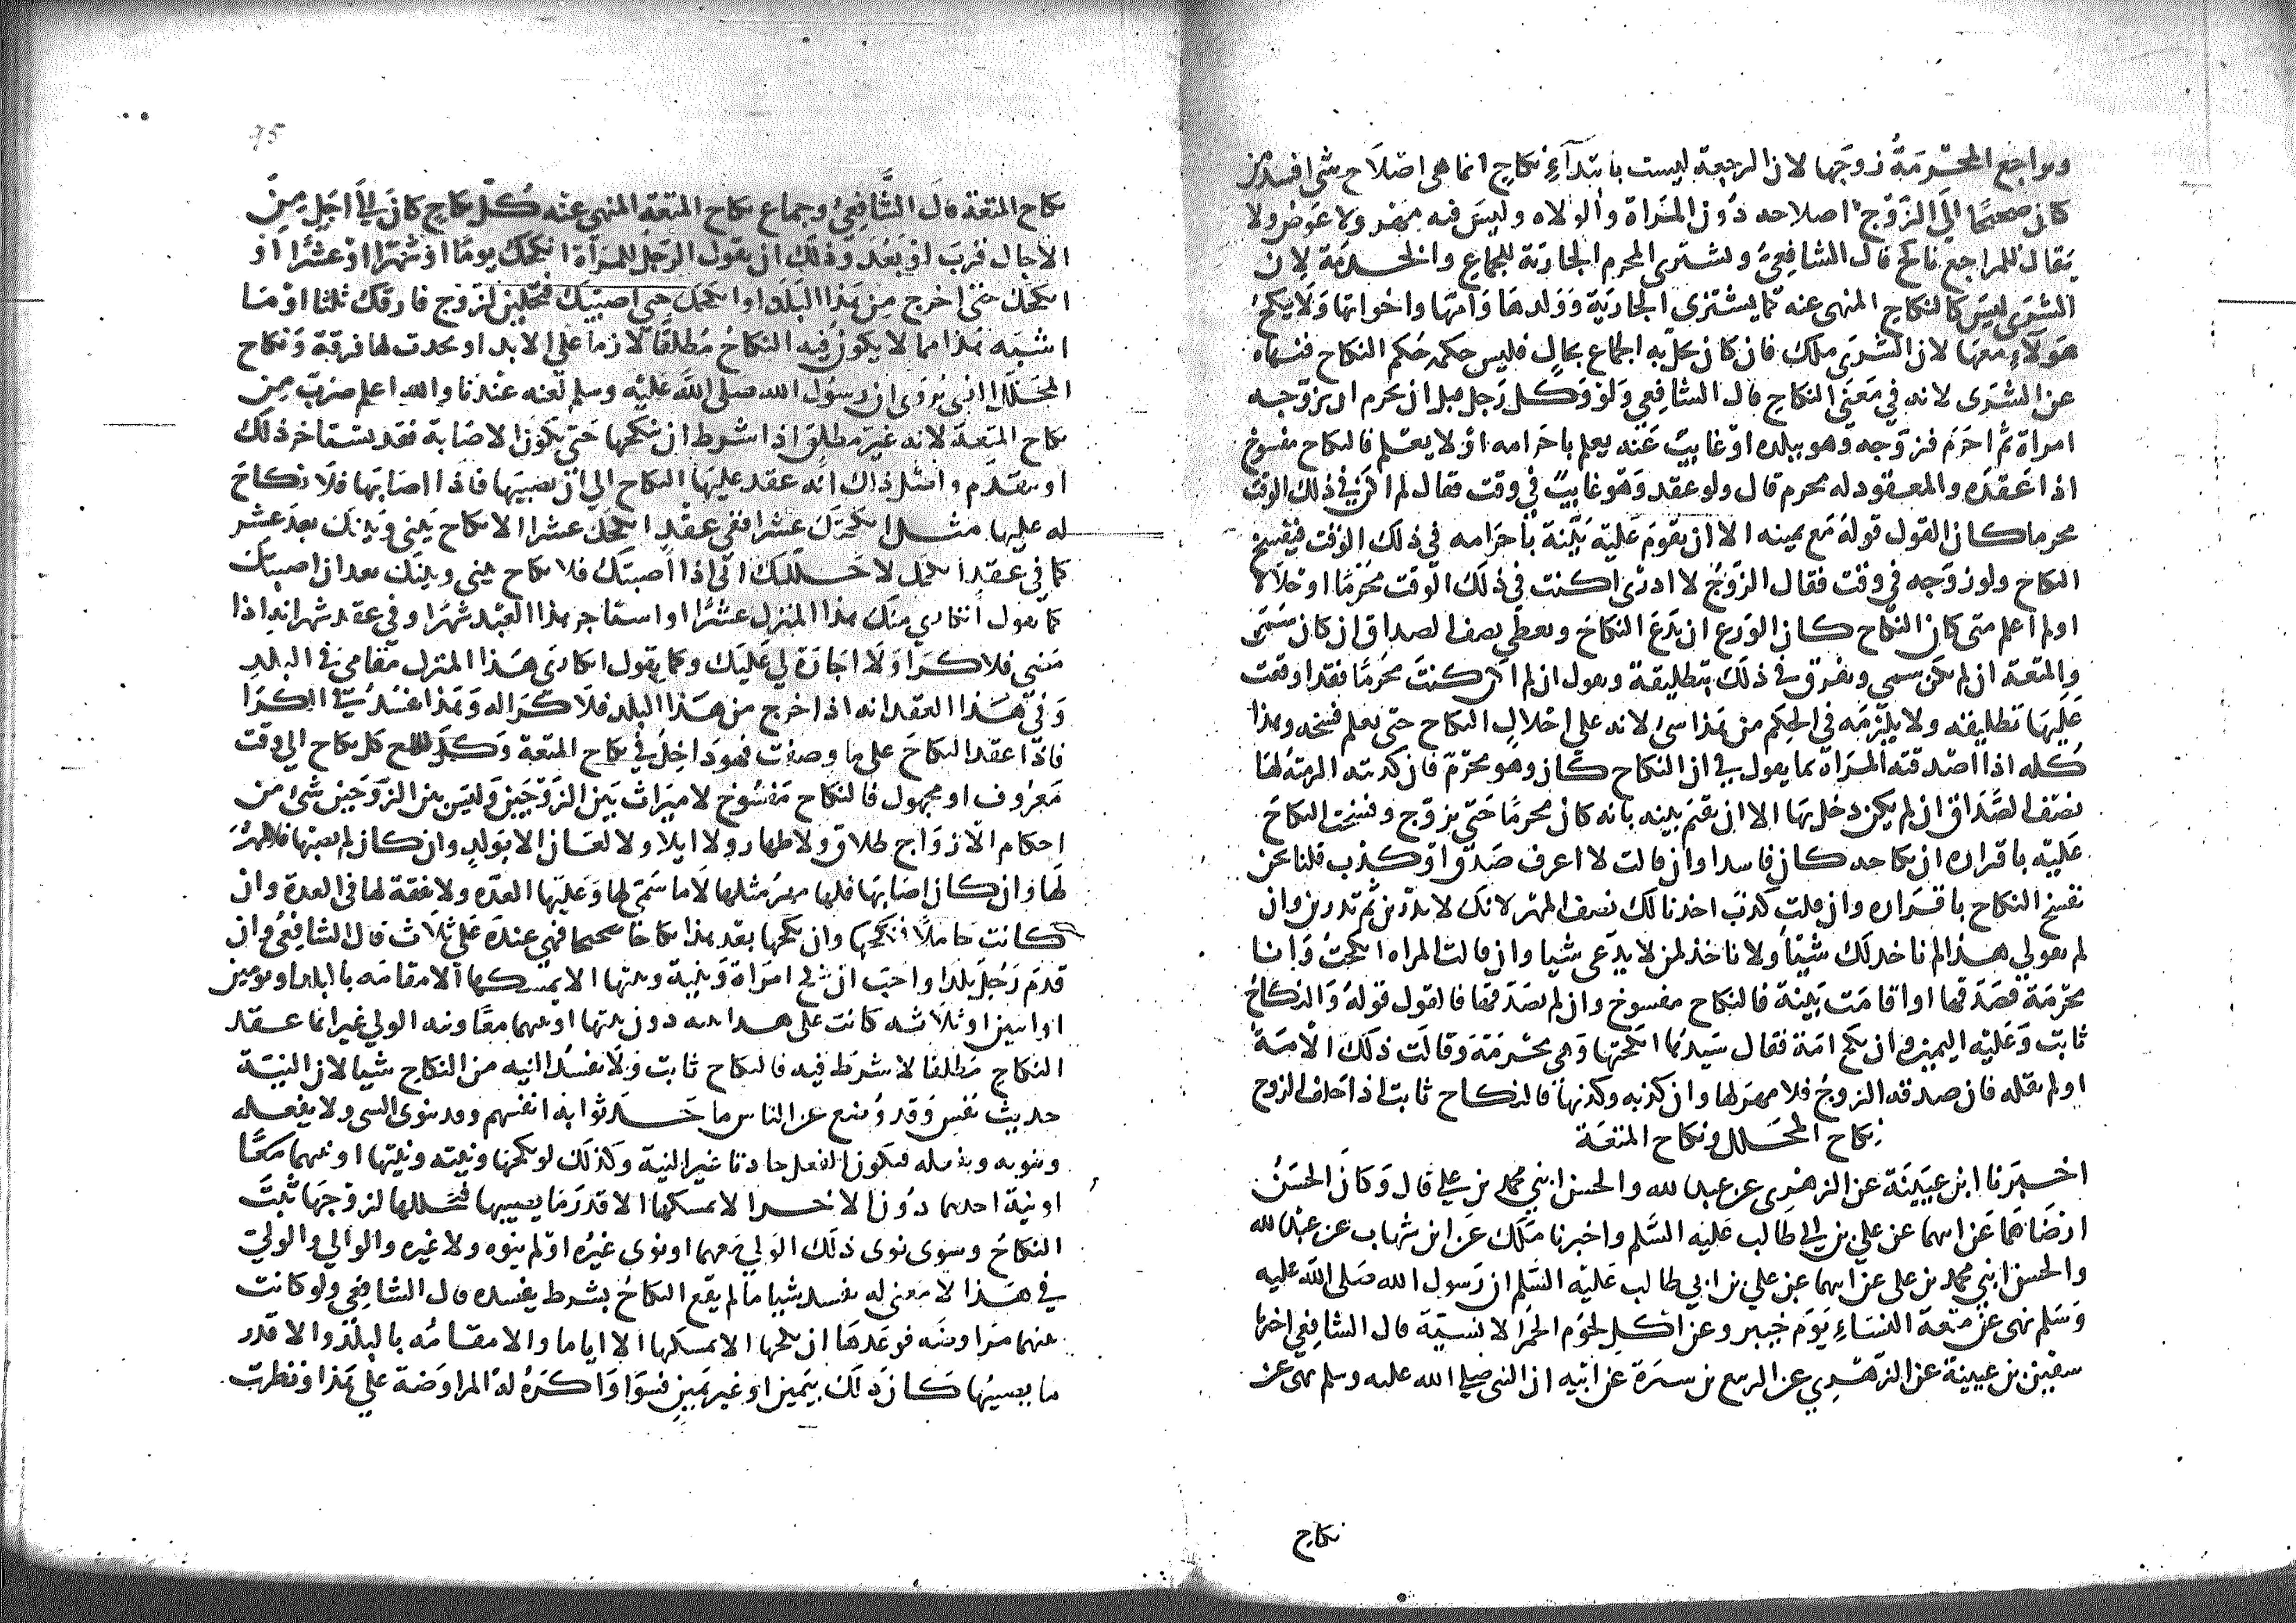 ويراجع المحرمة زوجها لان الرجعة ليست بابتدآء نكاح انما هى اصلاح شى افسد من
كان صحيحا الى الزوج اصلاحه دون المراة والولاه وليس فيه مهر ولا عوض ولا
يقال للمراجع ناكح قال الشافعي ويشترى المحرم الجارية للجماع والخدمة لان
الشرى ليس كالنكاح المنهى عنه كما يشترى الجارية وولدها وامها واخواتها ولا ينكح
هولآء معها لان الشرى ملك فان كان يحل به الجماع بحال فليس حكمه حكم النكاح فننهاه
عن الشرى لانه في معنى النكاح قال الشافعي ولو وكل رجل قبل ان يحرم ان يزوجه
امراة ثم احرم فزوجه وهو ببلده او غايب عنه يعلم باحرامه او لا يعلم فالنكاح مفسوخ
اذا عقده والمعقود له محرم قال ولو عقد وهو غايب في وقت فقال لم اكن في ذلك الوقت
محرما كان القول قوله مع يمينه الا ان يقوم عليه بينة باحرامه في ذلك الوقت فيفسخ
النكاح ولو زوجه في وقت فقال الزوج لا ادرى اكنت في ذلك الوقت محرما او حلالا
اولم اعلم متى كان النكاح كان الورع ان يدع النكاح ويعطى نصف الصداق ان كان سمى
والمتعة ان لم يكن سمى ويفرق في ذلك بتطليقة ويقول ان لم اكن كنت محرما فقد اوقعت
عليها تطليقة ولا يلزمه في الحكم من هذا شى لانه على احلال النكاح حتى يعلم فسخه وهذا
كله اذا صدقته المراة بما يقول في ان النكاح كان وهو محرم فان كذبته الزمته لها
نصف الصداق ان لم يكن دخل بها الا ان يقيم بينه بانه كان محرما حتى يزوج وفسخت النكاح
عليه باقراره ان نكاحه كان فاسدا وان قالت لا اعرف صدق او كذب قلنا نحن
نفسخ النكاح باقراره وان قلت كذب اخذنا لك نصف المهر لانك لا تدرين ثم تدرين وان
لم تقولي هذا لم ناخذ لك شيئا ولا ناخذ لمن لا يدعى شيا وان قالت المراه انكحت وانا
محرمة فصدقها او اقامت بينة فالنكاح مفسوخ وان لم يصدقها فالقول قوله والنكاح
ثابت وعليه اليمين وان نكح امة فقال سيدها انكحتها وهى محرمة وقالت ذلك الامة
اولم تقله فان صدقه الزوج فلا مهر لها وان كذبه وكذبها فالنكاح ثابت اذا حلف الزوج
نكاح المحلل ونكاح المتعة
اخبرنا ابن عيينة عن الزهرى عن عبد الله والحسن ابني محمد بن علي قال وكان الحسن
ارضاهما عن ابيهما عن علي بن ابي طالب عليه السلم واخبرنا ملك عن ابن شهاب عن عبد الله
والحسن ابني محمد بن على عن ابيهما عن علي بن ابي طالب عليه السلم ان رسول الله صلى الله عليه
وسلم نهى عن متعة النساء يوم خيبر وعن اكل لحوم الحمر الانسية قال الشافعي اخبرنا
سفين بن عيينة عن الزهري عن الربيع بن سبرة عن ابيه ان النبى صلى الله عليه وسلم نهى عن
نكاح
نكاح المتعة قال الشافعي وجماع نكاح المتعة المنهى عنه كل نكاح كان الى اجل من
الاجال قرب او بعد وذلك ان يقول الرجل للمراة انكحك يوما او شهرا او عشرا او
انكحك حتى اخرج من هذا البلد او انكحك حتى اصيبك فتحلين لزوج فارقك ثلثا او ما
اشبه هذا مما لا يكون فيه النكاح مطلقا لازما على الابد او يحدث لها فرقة ونكاح
المحلل الذى يروى ان رسول الله صلى الله عليه وسلم لعنه عندنا والله اعلم ضرب من
نكاح المتعة لانه غير مطلق اذا شرط ان ينكحها حتى يكون الاصابة فقد يستاخر ذلك
او يتقدم واصل ذلك انه عقد عليها النكاح الى ان يصيبها فاذا اصابها فلا نكاح
له عليها مثل انكحتك عشرا ففي عقد انكحك عشرا الا نكاح بيني وبينك بعد عشر
كما في عقد انكحك لاحللك انى اذا اصبتك فلا نكاح بيني وبينك بعد ان اصبتك
كما يقول اتكارى منك هذا المنزل عشرا او استاجر هذا العبد شهرا وفي عقد شهر انه اذا
مضى فلا كرا ولا اجارة لي عليك وكما يقول اتكارى هذا المنزل مقامى في البلد
وفي هذا العقد انه اذا خرج من هذا البلد فلا كرا له وهذا يفسد في الكرا
فاذا عقد النكاح على ما وصفت فهو داخل في نكاح المتعة وكذلك كل نكاح الى وقت
معروف او مجهول فالنكاح مفسوخ لا ميراث بين الزوجين وليس بين الزوجين شى من
احكام الازواج طلاق ولا ظهار ولا ايلا ولا لعان الا بولد وان كان لم يصبها فلا مهر
لها وان كان اصابها فلها مهر مثلها لا ما سمى لها وعليها العدة ولا نفقة لها في العدة وان
كانت حاملا وان نكحها بعد هذا نكاحا صحيحا فهى عنده على ثلاث قال الشافعي وان
قدم رجل بلدا واحب ان ينكح امراة ونيته ونيتها الا يمسكها الا مقامه بالبلد او يومين
او اثنين او ثلاثه كانت على هذا نيته دون نيتها او نيتهما معا ونيه الولي غير انهما عقد
النكاح مطلقا لا شرط فيه فالنكاح ثابت ولا تفسد النيه من النكاح شيا لان النية
حديث نفس وقد وضع عن الناس ما حدثوا به انفسهم وقد ينوى الشى ولا يفعله
وينويه ويفعله فيكون الفعل حادثا غير النية وكذلك لو نكحها ونيته ونيتها او نيتهما معا
او نية احدهما دون الاخر الا يمسكها الا قدر ما يصيبها فتحللها لزوجها ثبت
النكاح وسوى نوى ذلك الولي معهما او نوى غيره او لم ينوه ولا غيره والوالي والولي
في هذا لا معنى له يفسد شيا ما لم يقع النكاح بشرط يفسده قال الشافعي ولو كانت
بينهما مراوضه فوعدها ان نكحها الا يمسكها الا اياما والا مقامه بالبلد والا قدر
ما يصيبها كان ذلك بيمين او غير يمين فسوا واكره له المراوضة علي هذا ونظرت